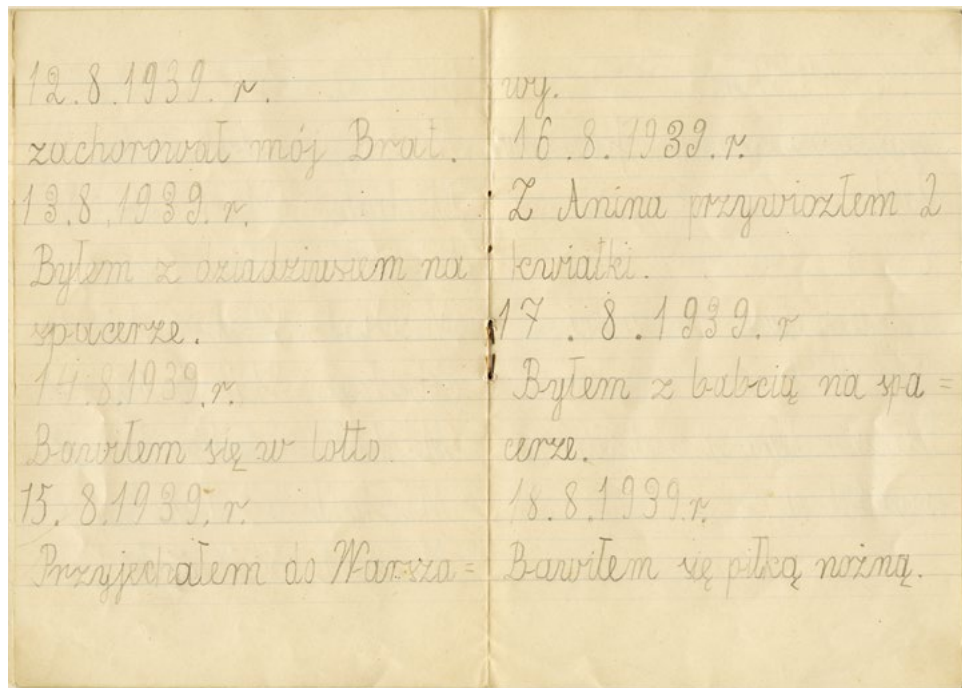 12.8.1939. r.
zachorował mój Brat.
13.8.1939. r.
Byłem z dziadziusiem na
spacerze.
14.8.1939. r.
Bawiłem się w lotto.
15. 8.1939. r.
Przyjechałem do Warsza=
wy.
16.8.1939. r.
Z Anina przywiozłem 2
kwiatki.
17. 8.1939. r
Byłem z babcią na spa=
cerze.
18.8.1939. r.
Bawiłem się piłką nożną.